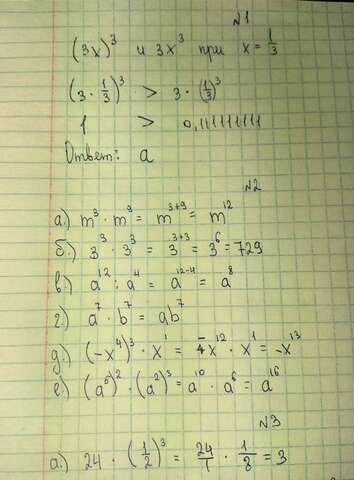 №1
(3x)³ и 3x³ при x = 1/3
(3 · 1/3)³ > 3 · (1/3)³
1 > 0,111111111
Ответ: a
№2
а.) m³ · m⁹ = m³⁺⁹ = m¹²
б.) 3³ · 3³ = 3³⁺³ = 3⁶ = 729
в.) a¹² : a⁴ = a¹²⁻⁴ = a⁸
г.) a⁷ · b⁷ = ab⁷
д.) (-x⁴)³ · x¹ = -x¹² · x¹ = -x¹³
е.) (a⁵)² · (a²)³ = a¹⁰ · a⁶ = a¹⁶
№3
а.) 24 · (1/2)³ = 24/1 · 1/8 = 3